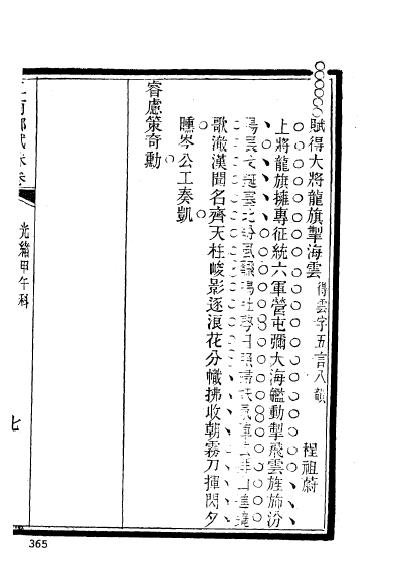 賦得大將龍旗掣海雲 得雲字五言八韻
程祖蔚
上將龍旗擁專征統六軍營屯彌大海艦動掣飛雲旌旆汾
陽
歌澈漢聞名齊天柱峻影逐浪花分幟拂收朝霧刀揮閃夕
曛岑公工奏凱
睿慮策奇勳
光緒甲午科
七
365